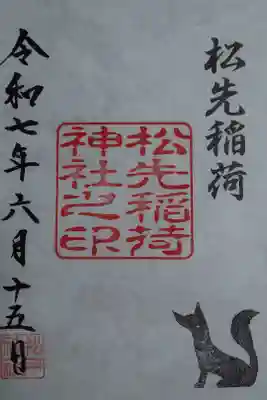 松先稲荷
松先稲荷
神社之印
令和七年六月十五日